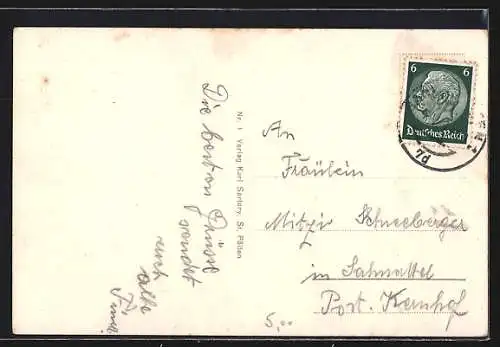 Die besten Grüsse
sendet
euch alle
Nr. 1 Verlag Karl Sartory, St. Pölten
6 6
Deutsches Reich
7d
An
Fräulein
Mitzi Schneeberger
in
Post. Kernhof
5,00